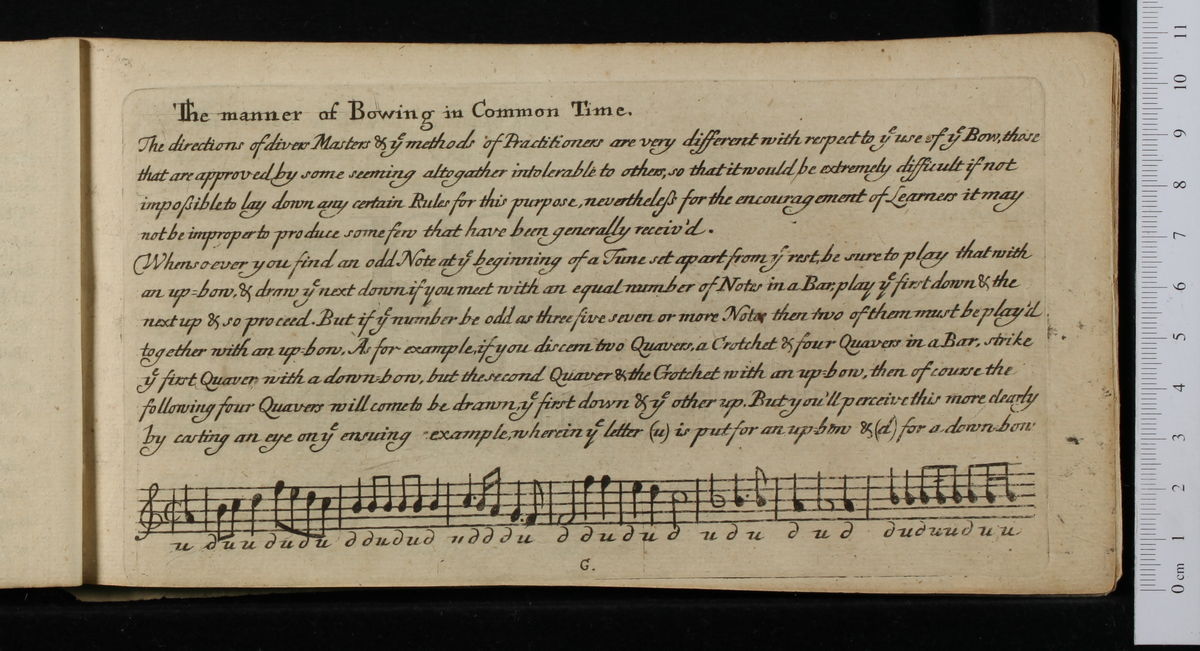 The manner of Bowing in Common Time.
The directions of divers Masters & yͤ methods of Practitioners are very different with respect to yͤ use of yͤ Bow, those
that are approved by some seeming altogather intolerable to others, so that it would be extremely difficult if not
impoßible to lay down any certain Rules for this purpose, nevertheleß for the encouragement of Learners it may
not be improper to produce some few that have been generally receiv'd.
Whensoever you find an odd Note at yͤ beginning of a Tune set apart from yͤ rest, be sure to play that with
an up=bow, & draw yͤ next down if you meet with an equal number of Notes in a Bar, play yͤ first down & the
next up & so proceed. But if yͤ number be odd as three five seven or more Notes then two of them must be play'd
together with an up-bow. As for example, if you discern two Quavers, a Crotchet & four Quavers in a Bar, strike
yͤ first Quaver with a down-bow, but the second Quaver & the Crotchet with an up=bow, then of course the
following four Quavers will come to be drawn, yͤ first down & yͤ other up. But you'll perceive this more clearly
by casting an eye on yͤ ensuing example, wherein yͤ letter (u) is put for an up-bow & (d) for a down-bow
u d u u d u d u d d u d u d u d d d u d d u d u d u d u d u d d u d u u d u u
G.
0 cm 1 2 3 4 5 6 7 8 9 10 11